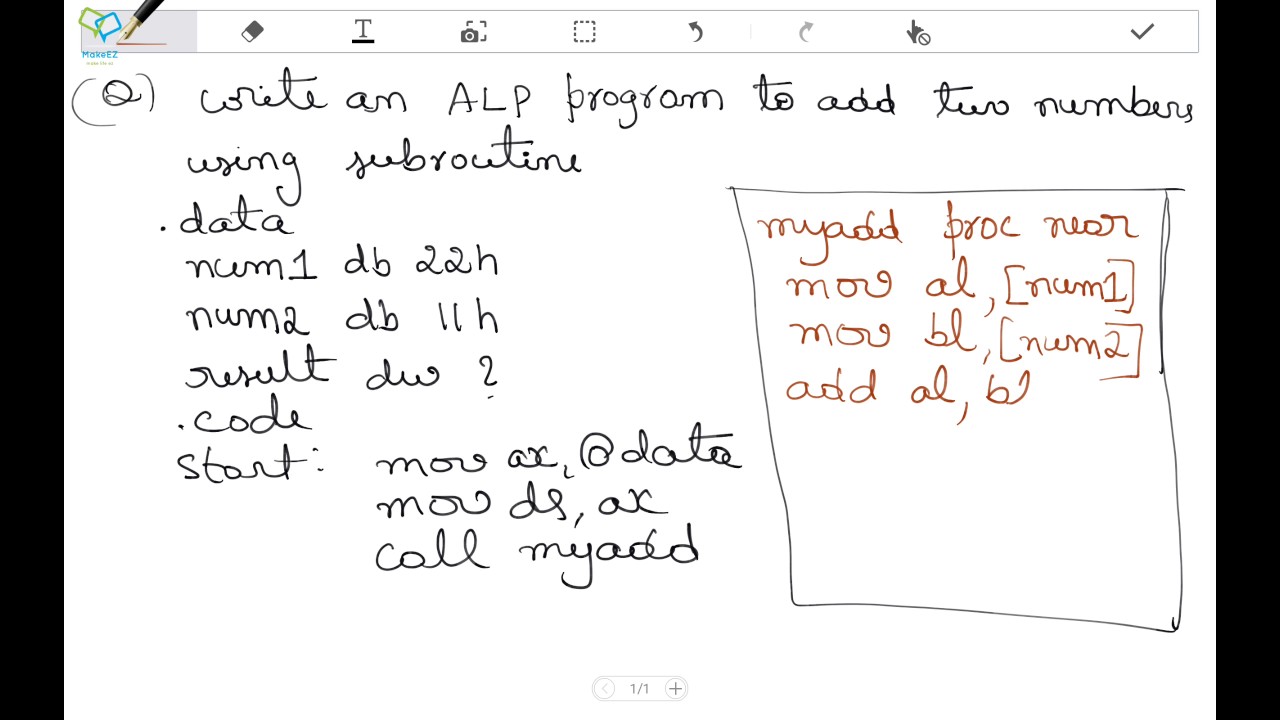 T
MakeEZ
make life ez
(Q) write an ALP program to add two numbers
using subroutine
.data
num1 db 22h
num2 db 11h
result dw ?
.code
start: mov ax, @data
mov ds, ax
call myadd
myadd proc near
mov al, [num1]
mov bl, [num2]
add al, bl
1/1